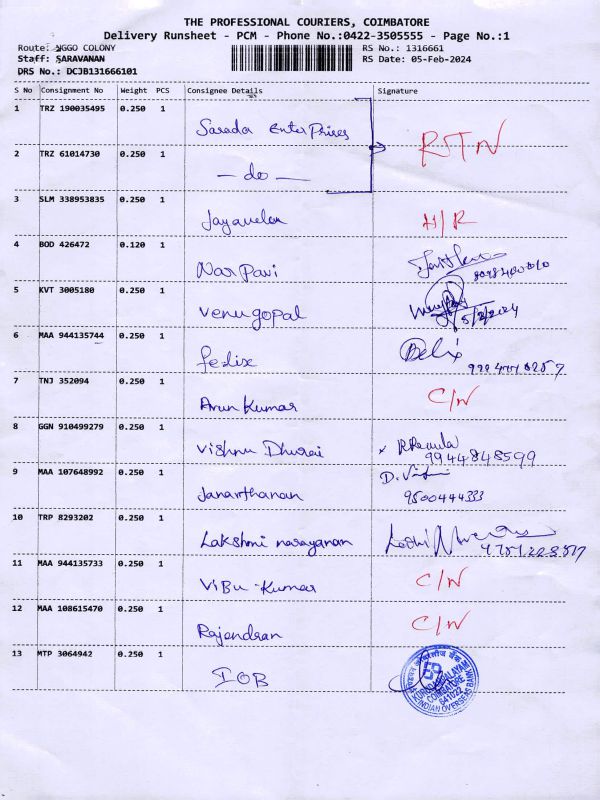 THE PROFESSIONAL COURIERS, COIMBATORE
Delivery Runsheet - PCM - Phone No.:0422-3505555 - Page No.:1
Route: GGO COLONY RS No.: 1316661
Staff: SARAVANAN RS Date: 05-Feb-2024
DRS No.: DCJB131666101
S No Consignment No Weight PCS Consignee Details Signature
1 TRZ 190035495 0.250 1 Sarada Enterprises
RTN
2 TRZ 61014730 0.250 1 - do -
3 SLM 338953835 0.250 1 Jayavelan H/R
4 BOD 426472 0.120 1 Nar Pavi
5 KVT 3005180 0.250 1 Venugopal 5/2/2024
6 MAA 944135744 0.250 1 Felix Belix
7 TNJ 352094 0.250 1 Arun Kumar C/N
8 GGN 910499279 0.250 1 Vishnu Dhurai x
9944848599
9 MAA 107648992 0.250 1 Janarthanan
9500444333
10 TRP 8293202 0.250 1 Lakshmi narayanan
11 MAA 944135733 0.250 1 ViBu Kumar C/N
12 MAA 108615470 0.250 1 Rajendran C/N
13 MTP 3064942 0.250 1 IOB
COIMBATORE
641022
INDIAN OVERSEAS BANK